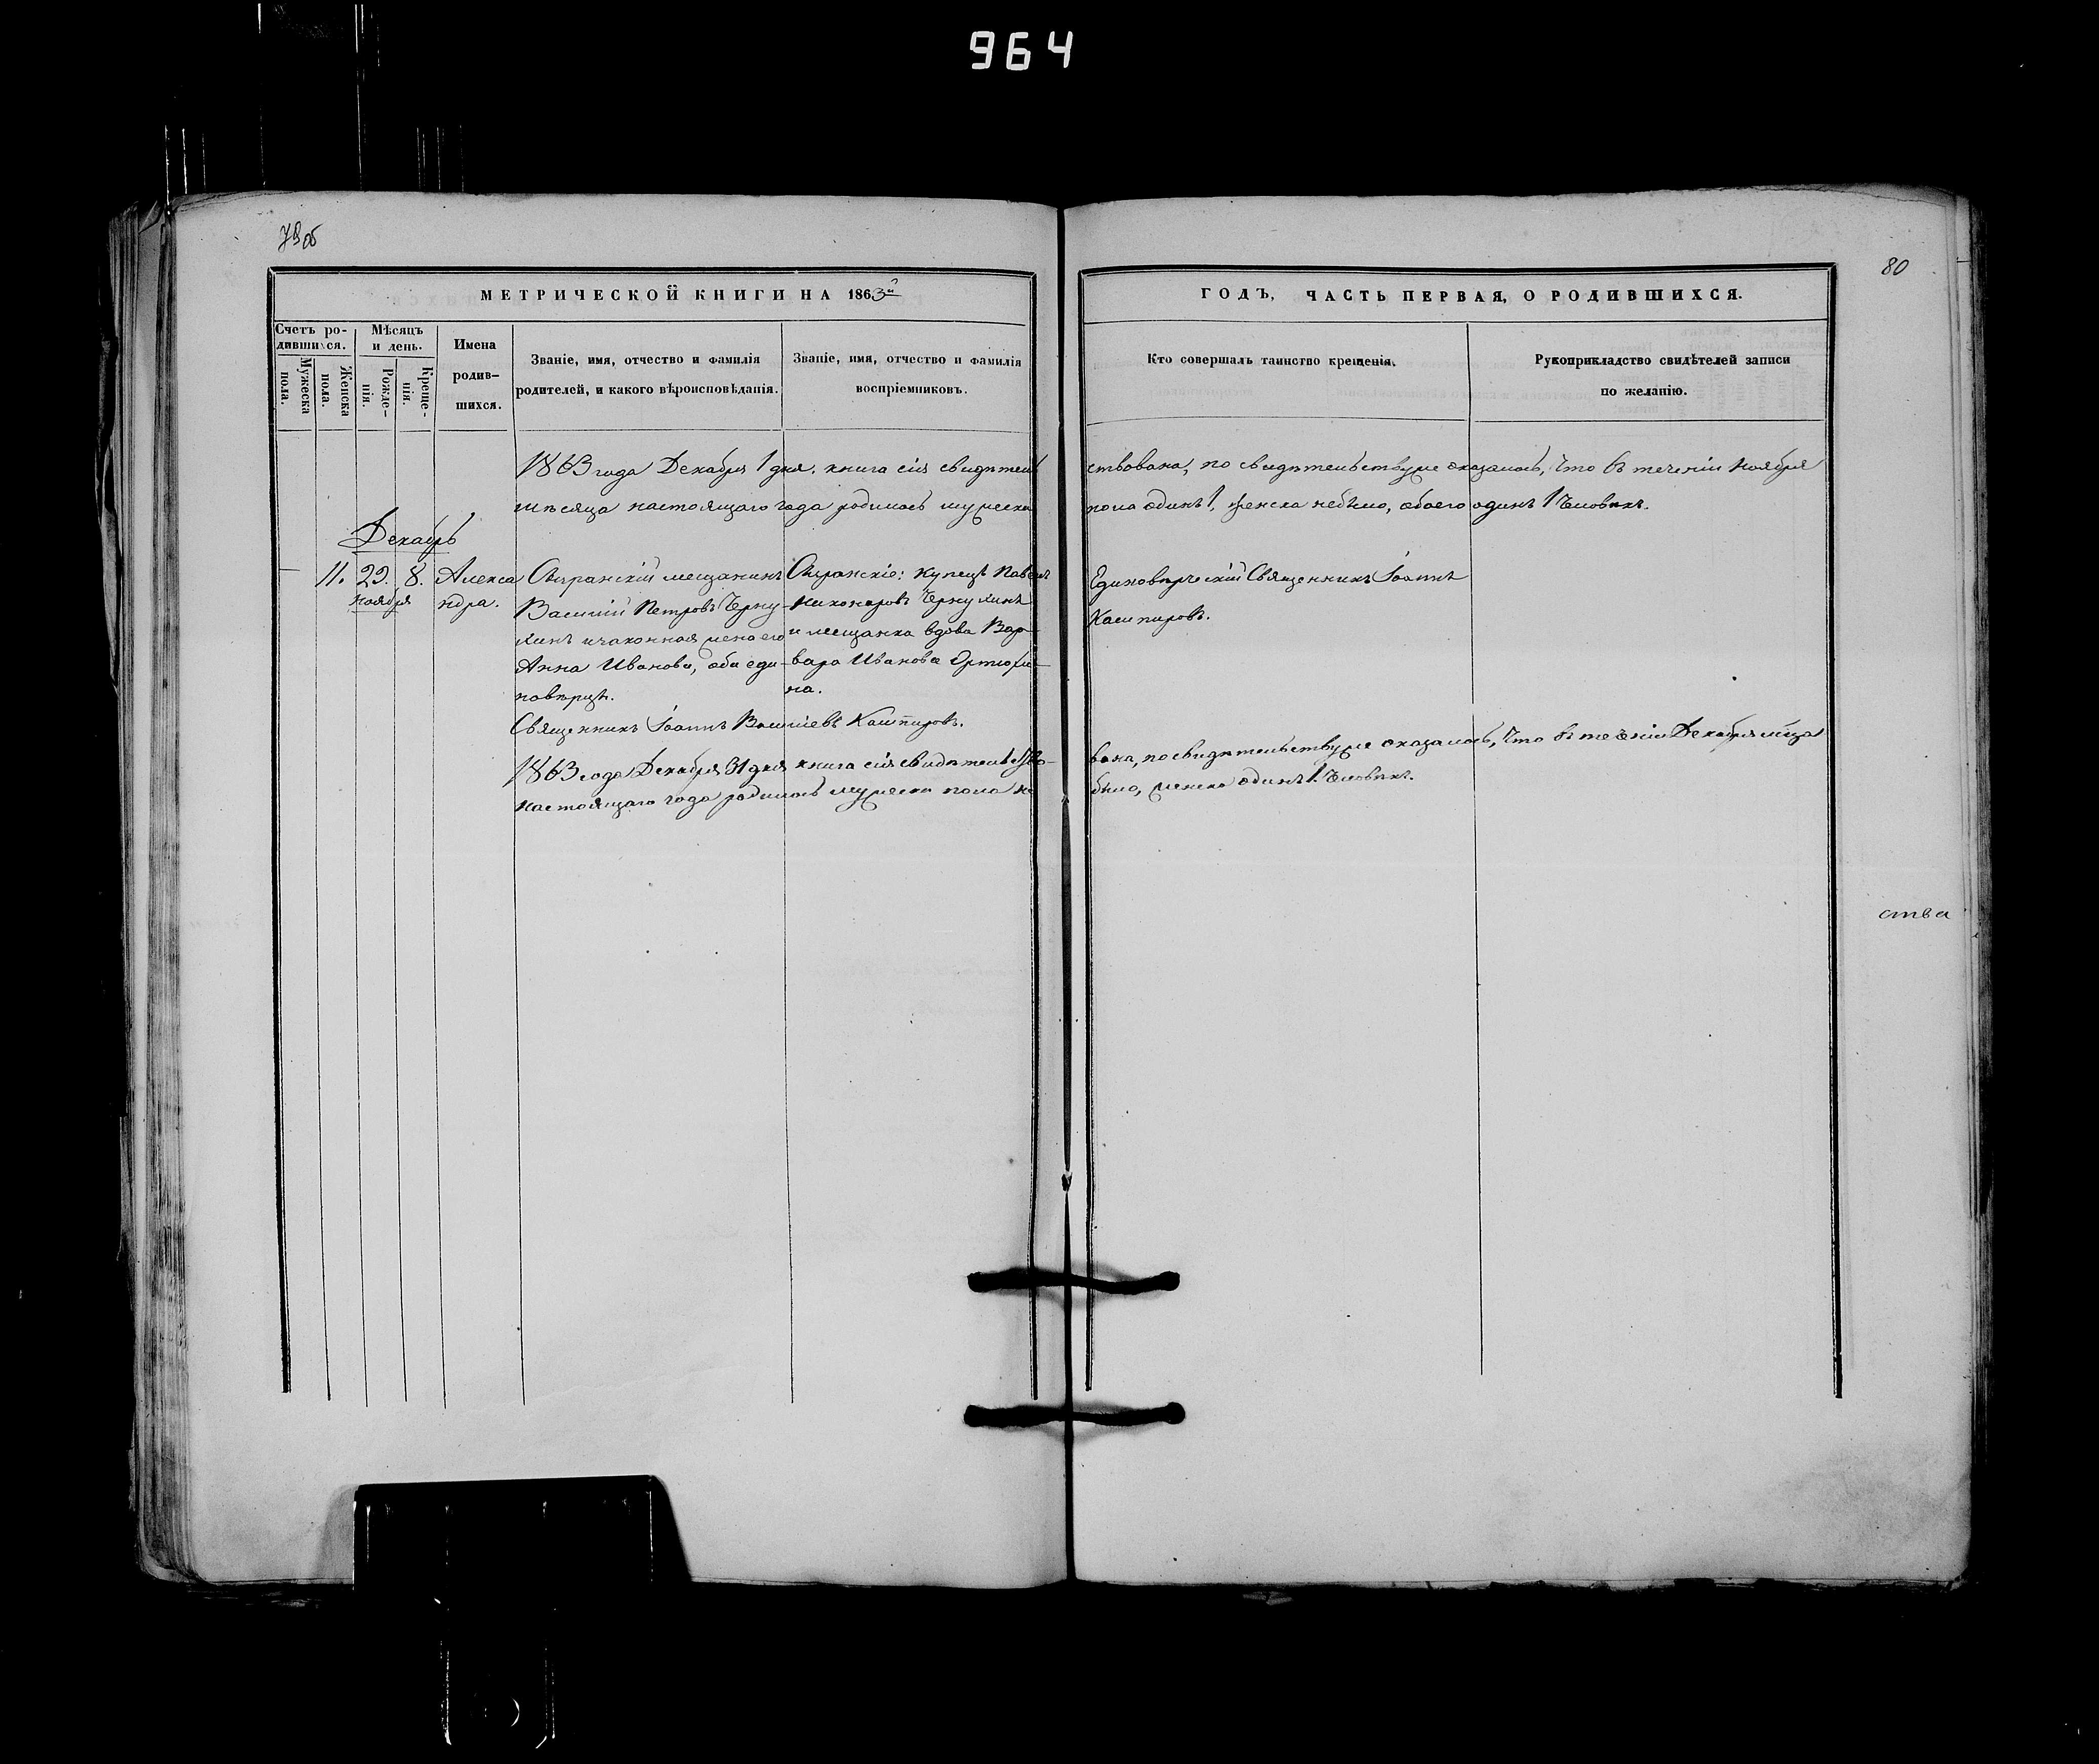 964
79 об
80
МЕТРИЧЕСКОЙ КНИГИ НА 1863й
ГОДЪ, ЧАСТЬ ПЕРВАЯ, О РОДИВШИХСЯ.
Счетъ ро-
дившихся.
Мужеска
пола.
Женска
пола.
Мѣсяцъ
и день.
Рожде-
нія.
Креще-
нія.
Имена
родив-
шихся.
Званіе, имя, отчество и фамилія
родителей, и какого вѣроисповѣданія.
Званіе, имя, отчество и фамилія
воспріемниковъ.
Кто совершалъ таинство крещенія.
Рукоприкладство свидѣтелей записи
по желанію.
1863 года Декабря 1 дня. книга сія свидѣтель
ствована, по свидѣтельству же оказалось, что въ теченіи Ноября
мѣсяца настоящаго года родилось мужеска
пола одинъ 1, женска небыло, обоего одинъ 1 человѣкъ.
Декабрь
— 11. 29. 8. Алекса
Ноября ндра.
Сызранскій мещанинъ
Василій Петровъ Черну-
хинъ изаконная жена его
Анна Иванова, оба еди-
новѣрцы.
Сызранскіе: купецъ Павелъ
Никоноровъ Чернухинъ
и мещанка вдова Вар-
вара Иванова Ортюхи-
на.
Единовѣрческій Священникъ Іоаннъ
Кашпировъ.
Священникъ Іоаннъ Васильевъ Кашпировъ.
1863 года Декабря 31 дня книга сія свидѣтельство-
вана, по свидѣтельству же оказалось, что въ теченіи Декабря мѣсяца
настоящаго года родилось мужеска пола не
было, женска одинъ 1. человѣкъ.
ства